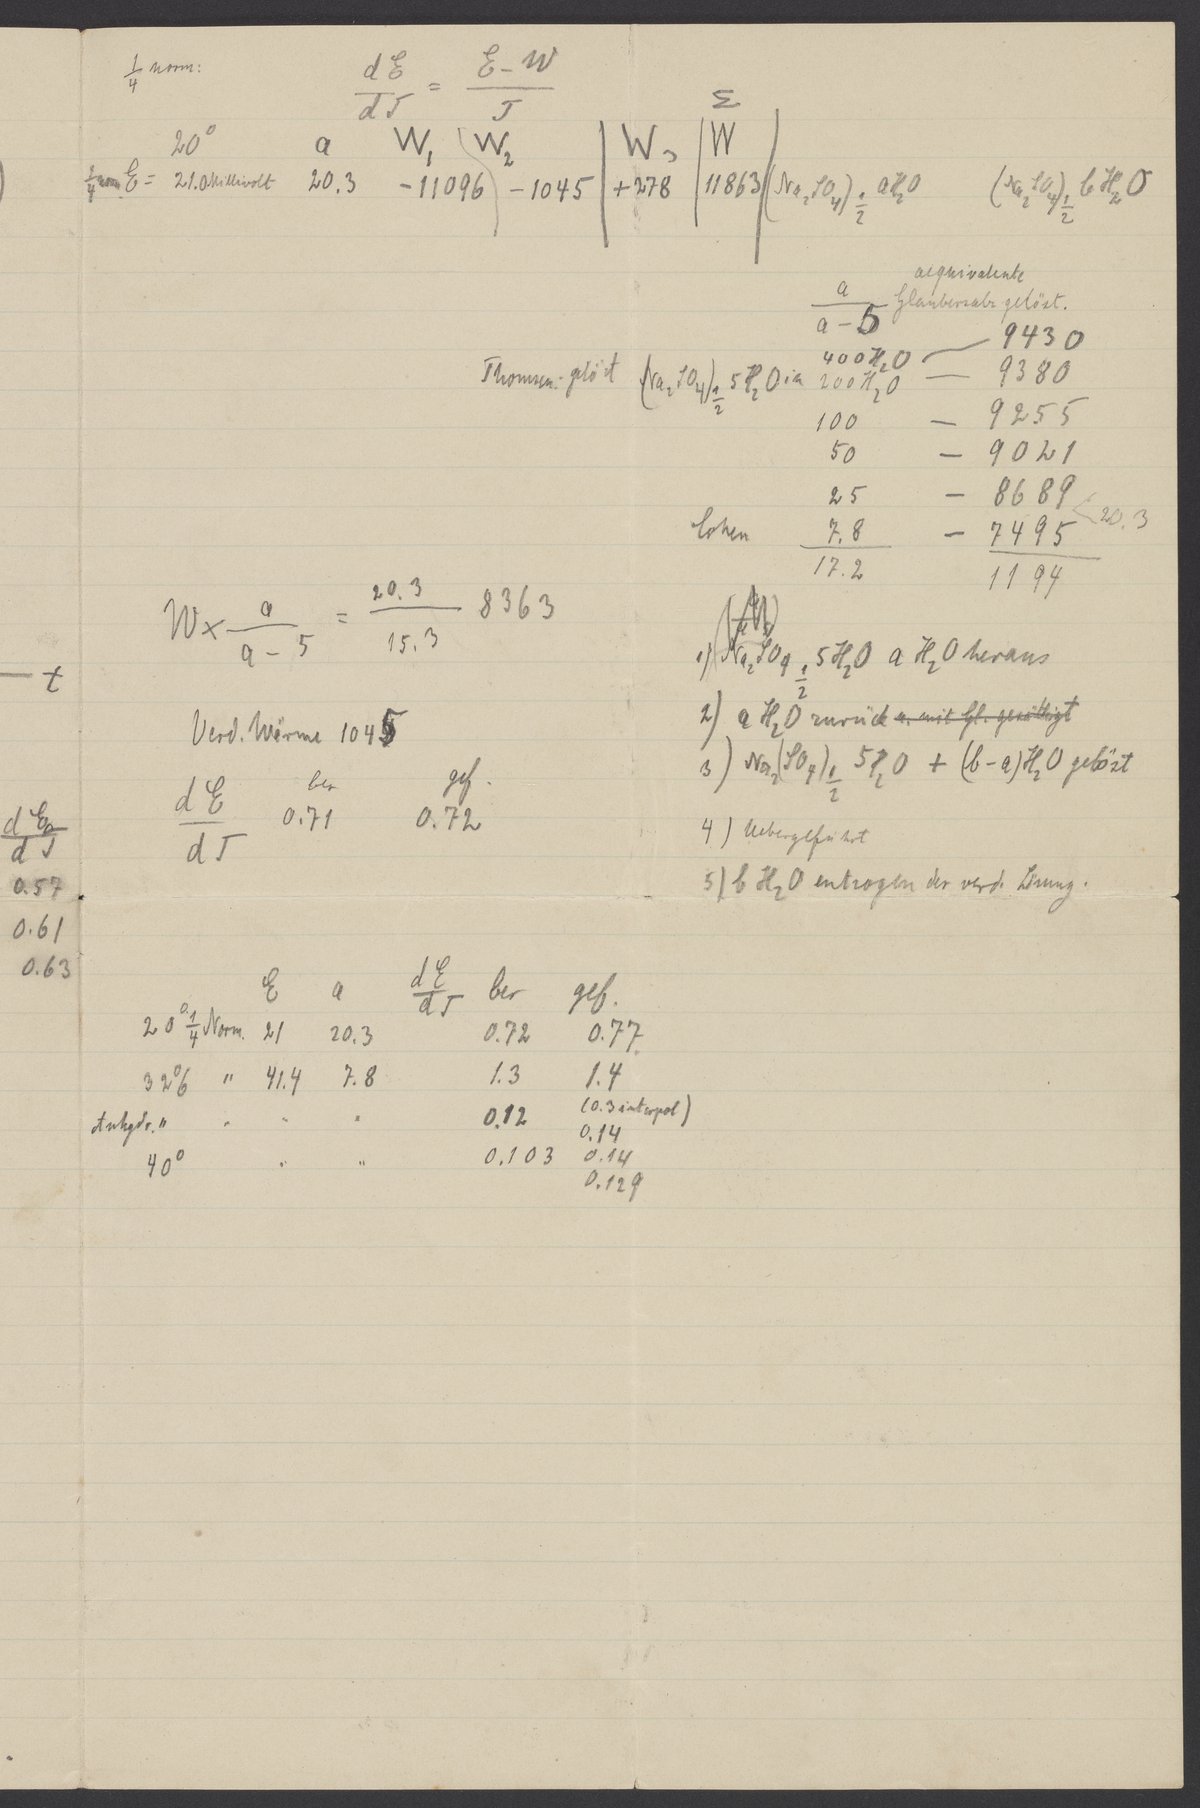 1/4 norm:
dE/dT = (E – W)/T
Σ
20° a W₁ W₂ W₃ W
1/4 norm. E = 21.0 Millivolt 20.3 –11096 –1045 +278 11863 (Na₂SO₄)½ aH₂O (Na₂SO₄)½ bH₂O
aequivalente
a/(a–5) Glaubersalz gelöst.
400 H₂O — 9430
Thomsen: gelöst (Na₂SO₄)½ 5H₂O in 200 H₂O — 9380
100 — 9255
50 — 9021
25 — 8689
< 20.3
Cohen 7.8 — 7495
17.2 1194
W × a/(a – 5) = 20.3/15.3 8363
1) Na₂SO₄ ½ 5H₂O a H₂O heraus
— t
2) a H₂O zurück u. mit Gl. gesättigt
Verd. Wärme 1045
3) Na₂(SO₄)½ 5H₂O + (b–a)H₂O gelöst
ber gef.
dE/dT 0.71 0.72
4) Uebergeführt
5) b H₂O entzogen der verd. Lösung.
dE/dT
0.57
0.61
0.63
E a dE/dT ber gef.
20° 1/4 Norm. 21 20.3 0.72 0.77
32°6 " 41.4 7.8 1.3 1.4
Anhydr. " " " " 0.12 (0.3 interpol)
0.14
40° " " 0.103 0.14
0.129